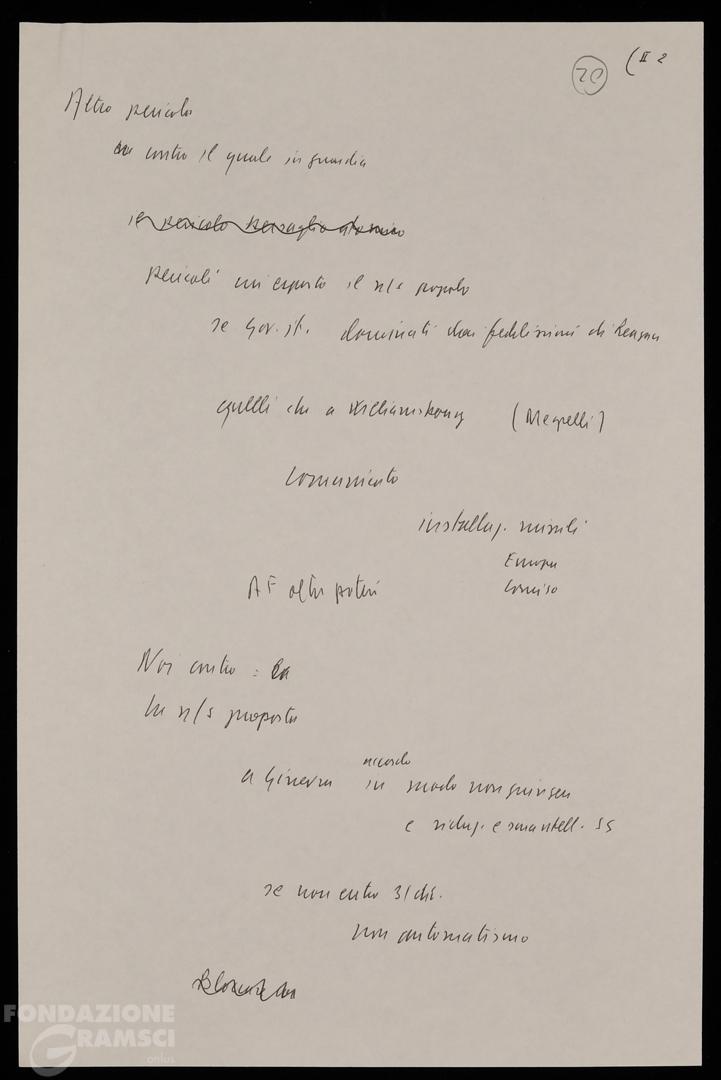 20 (II 2
Altro pericolo
contro il quale in guardia
il pericolo bersaglio atomico
pericoli cui esposto il n/s popolo
se Gov. it. dominati da fedelissimi di Reagan
quelli che a Williamsburg (
Comunicato
installaz. missili
Europa
Comiso
AF altri poteri
Noi contro : la
la n/s proposta
accordo
a Ginevra in modo non giungere
e riduz. e smantell. SS
se non entro 31 dic.
non automatismo
FONDAZIONE
GRAMSCI
onlus